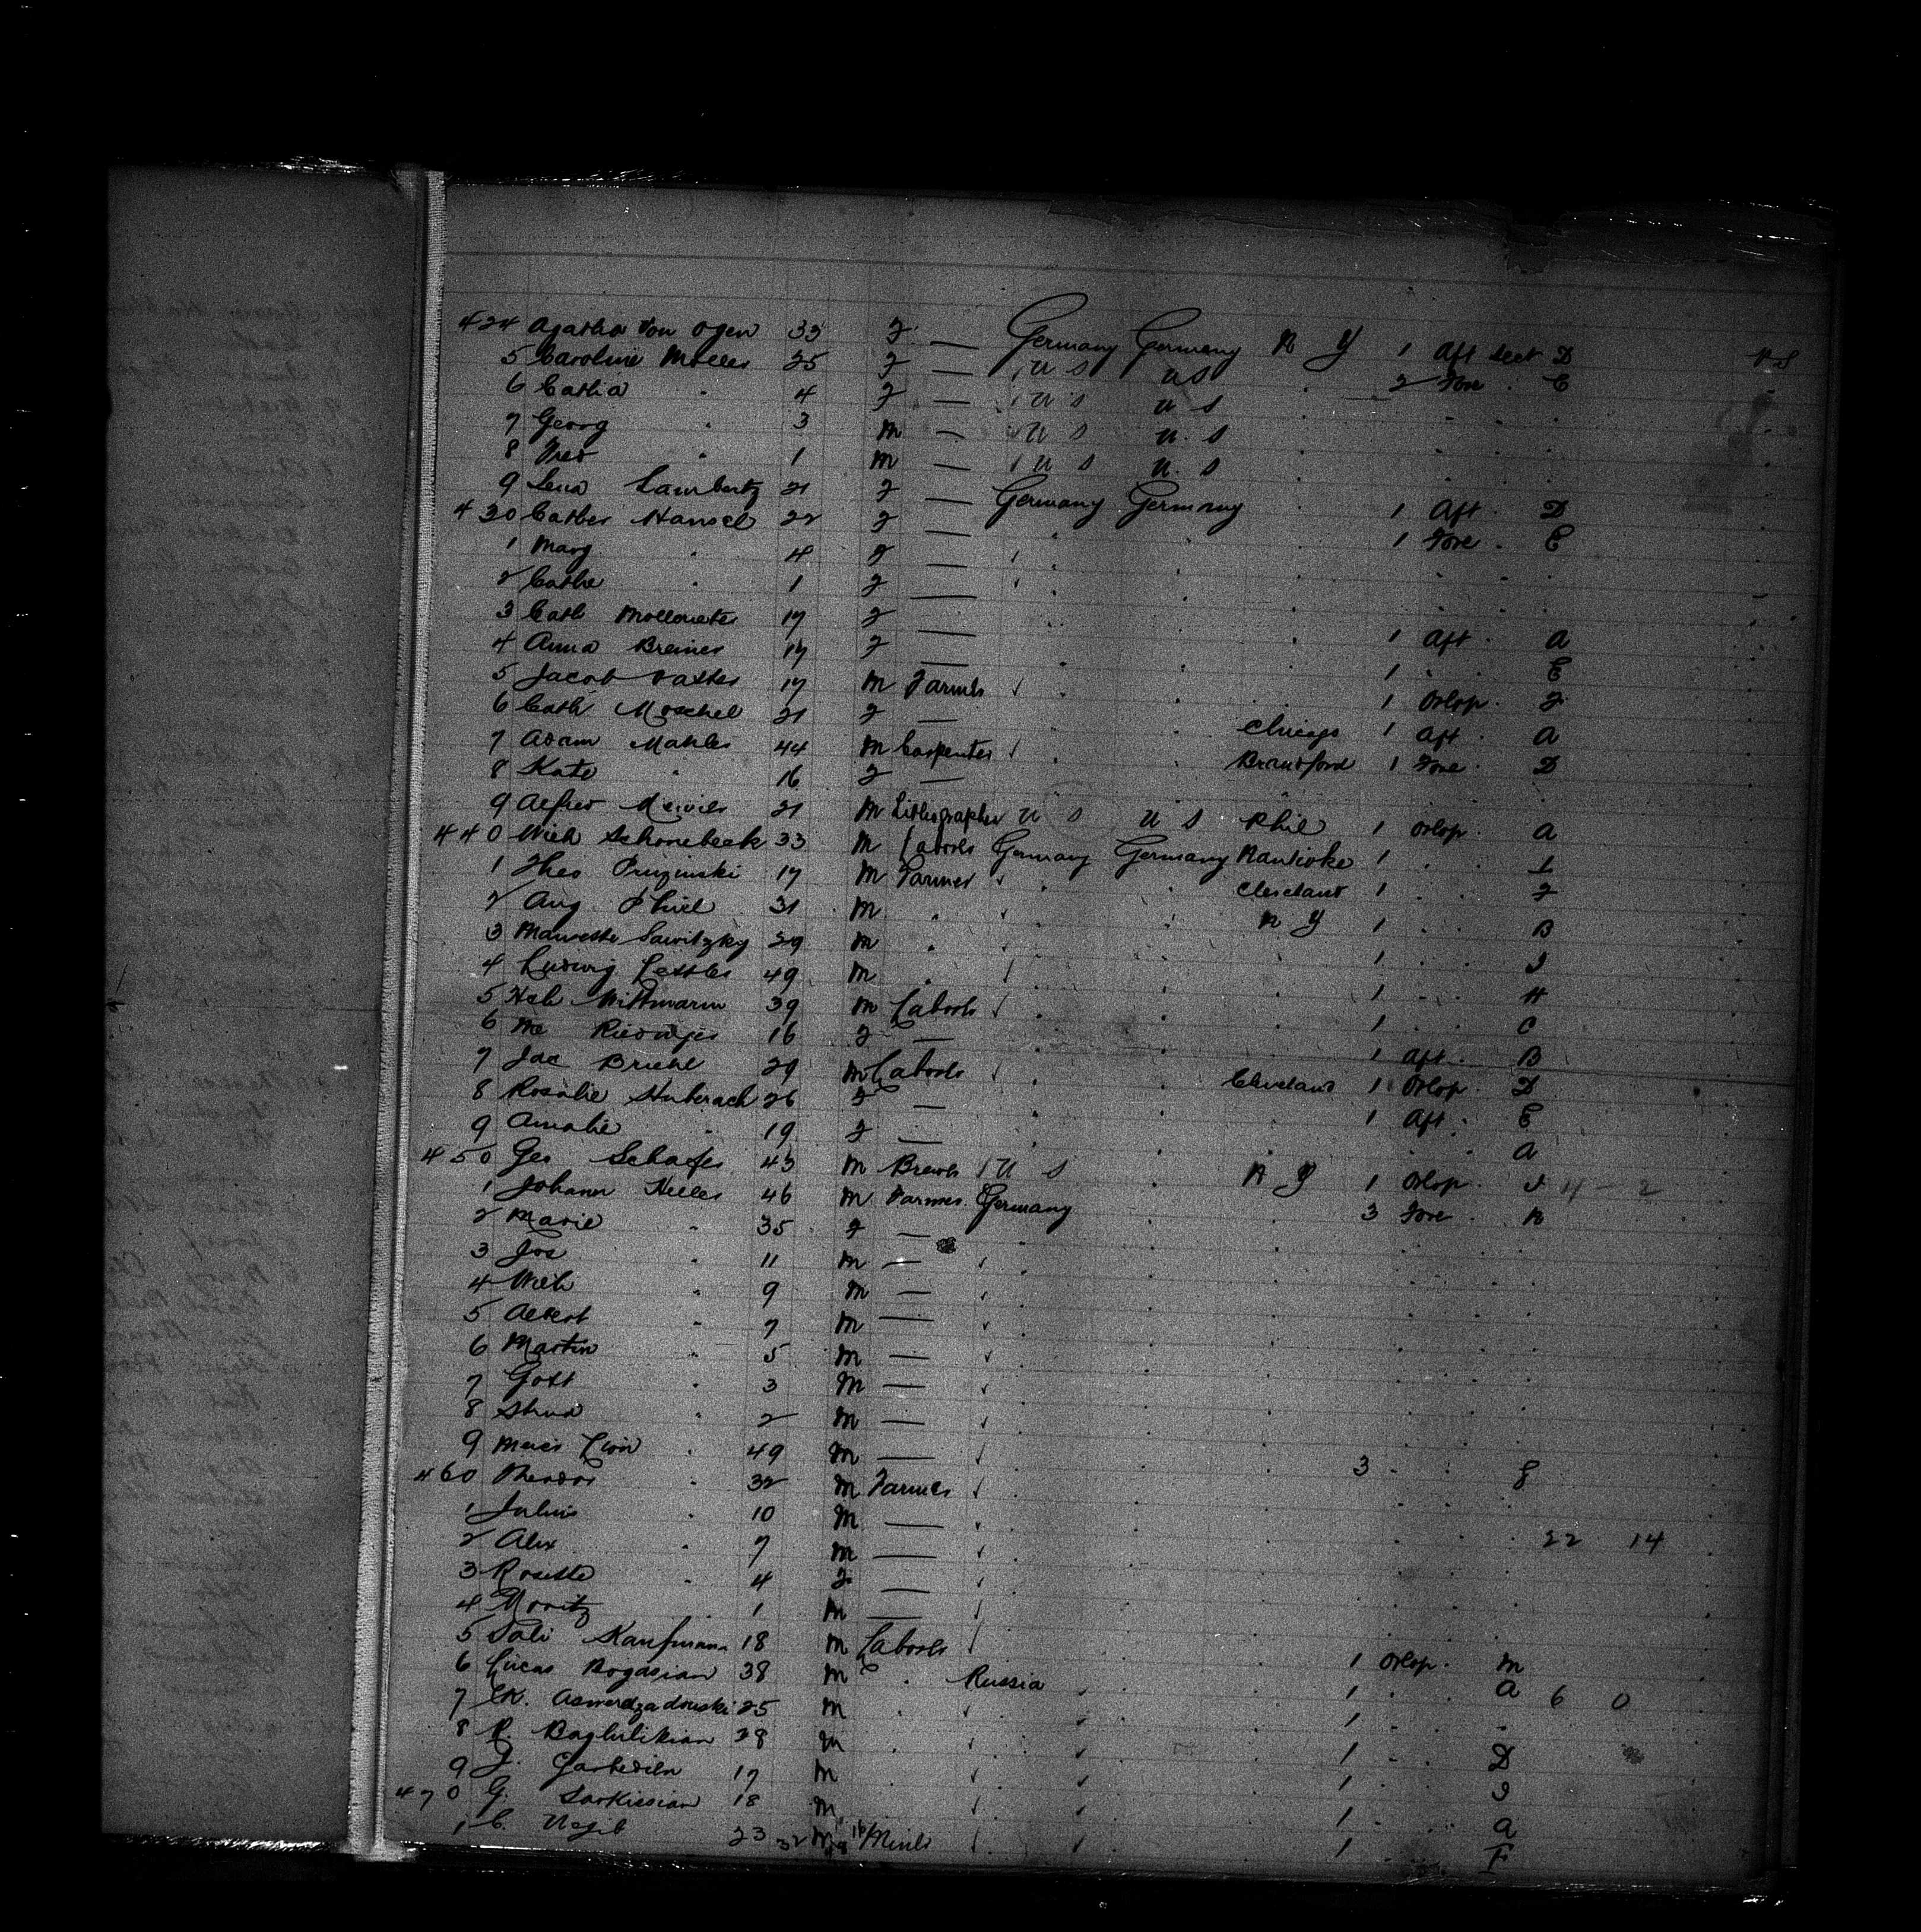 424 Agatha Von Ogen 33 F — Germany Germany N Y 1 Aft Sect D
5 Caroline Moller 25 F — U S U S 2 Fore . E
6 Catha " 4 F — U S U S
7 Georg " 3 M — U S U. S
8 Fred " 1 M — U S U. S
9 Lena Lambertz 21 F — Germany Germany 1 Aft . D
430 Cather Hansel 22 F — 1 Fore . E
1 Marg " 4 F —
2 Cathe " 1 F —
3 Cath 17 F — 1 Aft . A
4 Anna Breiner 17 F — 1 . E
5 Jacob Vatter 17 M Farmer 1 Orlop . F
6 Cath Moschel 21 F — Chicago 1 Aft . A
7 Adam Mahler 44 M Carpenter Brantford 1 Fore . D
8 Kate " 16 F —
9 Alfred 21 M Lithographer U S U S Phil 1 Orlop . A
440 Wilh Schonebeck 33 M Laborer Germany Germany Nanticoke 1
1 Theo 17 M Farmer Cleveland 1 F
2 Aug Thiel 31 M " N Y 1 B
3 Sawitzky 29 M " 1
4 Ludwig 49 M " 1 H
5 Hch Wittmann 39 M Laborer 1 C
6 16 F — 1 Aft . B
7 Jac Bruehl 29 M Laborer Cleveland 1 Orlop . D
8 Rosalie 26 F — 1 Aft . E
9 Amalie " 19 F — A
450 Geo Schaefer 43 M Brewer U S N Y 1 Orlop . 4 - 2
1 Johann Heller 46 M Farmer Germany 3 Fore . N
2 Marie " 35 F —
3 Jos " 11 M —
4 Wilh " 9 M —
5 Albert " 7 M —
6 Martin " 5 M —
7 Gott " 3 M —
8 " 2 M —
9 " 49 M — 3
460 " 32 M Farmer
1 Julius " 10 M —
2 Alex " 7 M — 22 14
3 Rosette " 4 F —
4 Moritz " 1 M —
5 Sali Kaufmann 18 M Laborer 1 Orlop . M
6 Lucas Bogasian 38 M " Russia 1 A 6 0
7 25 M 1
8 28 M 1 D
9 J. 17 M 1
470 G. Sarkissian 18 M 1 A
1 C. 23 32 M 16 Miner 1 F